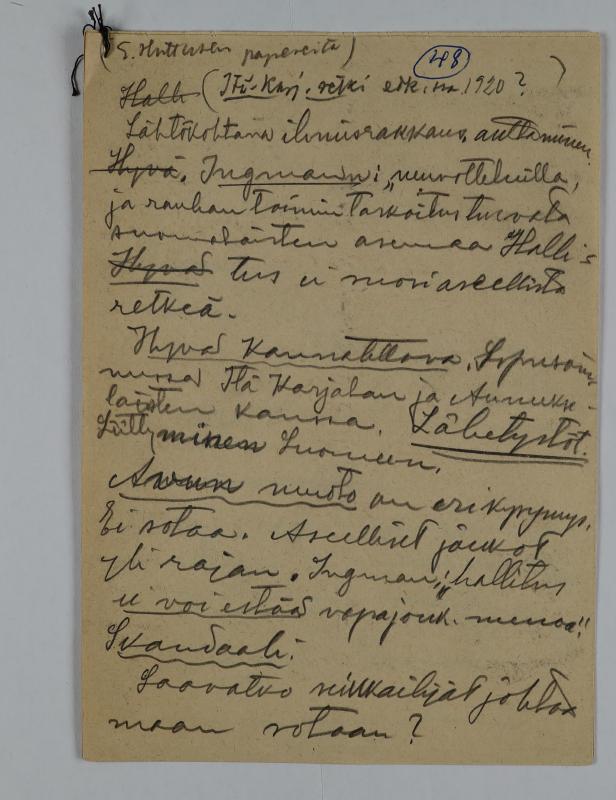 (E. Huttusen papereita)
48
Halli (Itä-Karj. retki 1920?)
Lähtökohtana ihmisrakkaus, auttaminen.
Hyvä. Ingman: "neuvotteluilla,
ja rauhan toimin tarkoitus turvata
suomalaisten asemaa Halli-
Hyvä tus ei suosi aseellista
retkeä.
Hyvä kannatettava. Sopusoin-
nussa Itä Karjalan ja Aunuk-
laisten kanssa. Lähetystöt.
Liittyminen Suomeen.
Avun muoto on eri kysymys.
Ei sotaa. Aseelliset joukot
yli rajan. Ingman: "hallitus
ei voi estää vapajouk. menoa"!
Skandaali.
Saavatko seikkailijat johta-
maan sotaan?